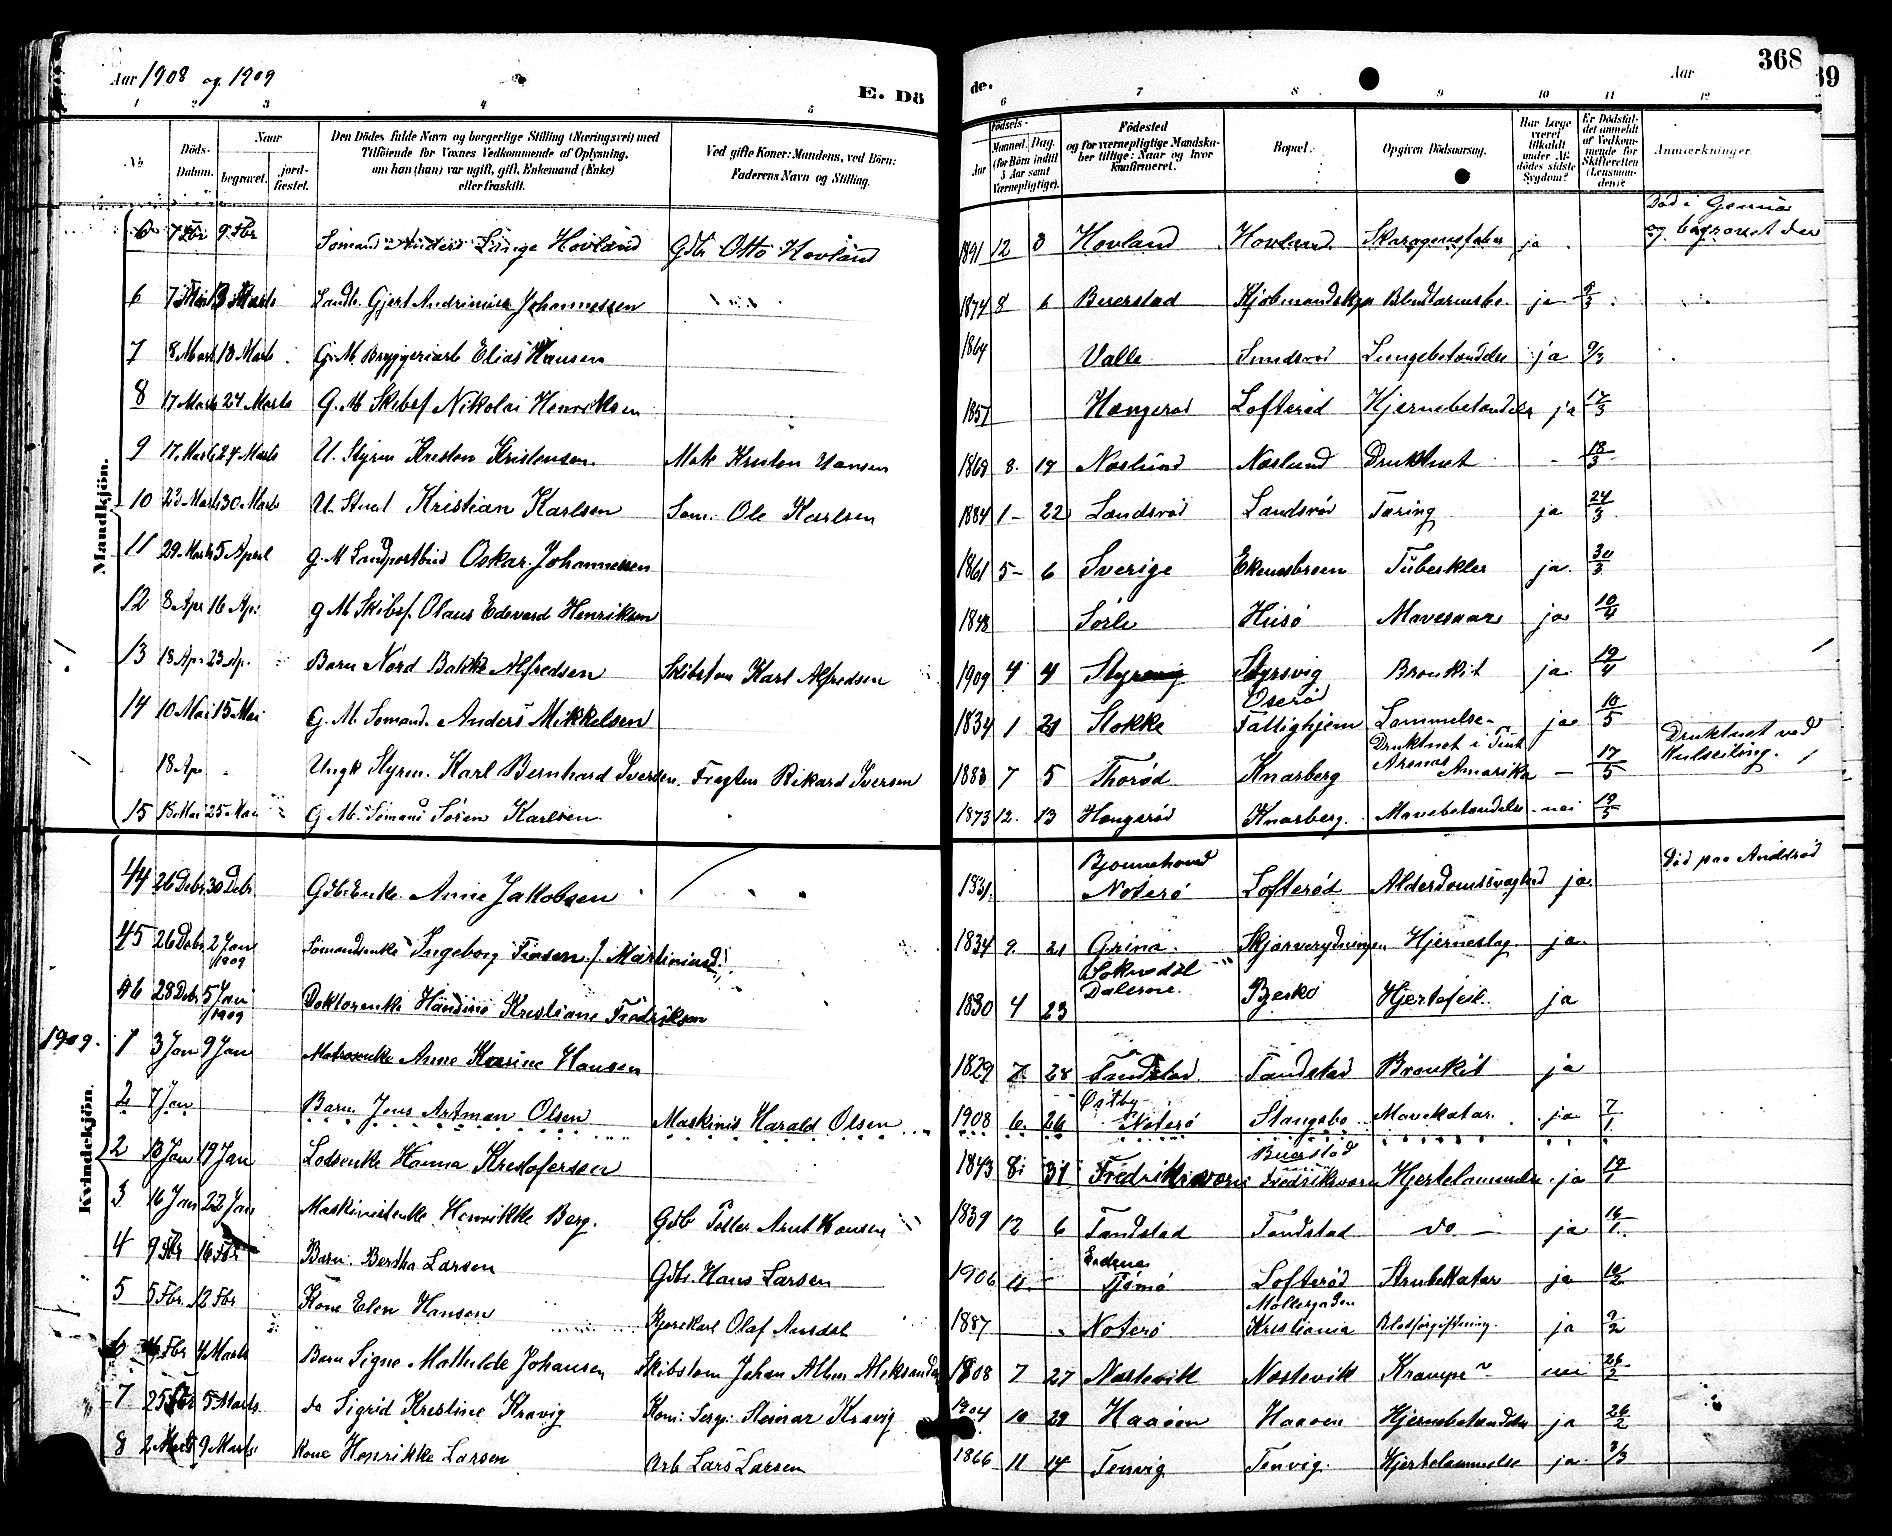 Aar 1908 og 1909
E. Dö de.
Aar
368
1 2 3 4 5 6 7 8 9 10 11 12
No
Döds-Datum.
Naar
begravet.
jord-fæstet.
Den Dödes fulde Navn og borgerlige Stilling (Næringsvei) med Tilföiende for Voxnes Vedkommende af Oplysning, om han (hun) var ugift, gift, Enkemand (Enke) eller fraskilt.
Ved gifte Koner: Mandens, ved Börn: Faderens Navn og Stilling.
Födsels-
Aar
Maaned. Dag.
(for Börn indtil 5 Aar samt Værnepligtige).
Födested og for værnepligtige Mandskaber tillige: Naar og hvor konfirmeret.
Bopæl.
Opgiven Dödsaarsag.
Har Læge været tilkaldt under Afdödes sidste Sygdom?
Er Dödsfaldet anmeldt af Vedkommende for Skifteretten (Lensmanden)?
Anmærkninger.
Mandkjön.
6 7 Fbr 9 Fbr Sömand Anders Lange Hovland Gdb. Otto Hovland 1891 12 3 Hovland Hovland ja Död i Genua og begravet der
6 7 Mart 13 Marts Landh. Gjert Andrinius Johannessen 1874 8 6 Buerstad ja 8/3
7 8 Mart 13 Marts G. M. Bryggeriarb Elias Hansen 1864 Valle Sundsrød Lungebetændelse ja 9/3
8 17 Marts 24 Marts G. M. Skibsf Nikolai Henriksen 1857 Hængerød Lofterød Hjernebetændelse ja 17/3
9 17 Marts 24 Marts U. Styrm Kresten Kristensen Mat. Kresten Hansen 1868 8 17 Næslund Næslund Druktnet - 18/3
10 23 Marts 30 Marts U. Stud Kristian Karlsen Söm. Ole Karlsen 1884 1 22 Landsrød Landsrød Tæring ja 24/3
11 29 Marts 5 April G. M. Landpostbud Oskar Johannessen 1861 5 6 Sverige Ekenesbroen Tuberkler ja 30/3
12 8 Apr 16 Ap. G M Skibsf. Olaus Edevard Henriksen 1848 Sørli Husö Mavesaar ja 10/4
13 18 Apr 23 Ap. Barn Nord Bakke Alfredsen Skibstøm Karl Alfredsen 1909 4 4 Styrsvig Styrsvig Bronkit ja 19/4
14 10 Mai 15 Mai G. M. Sømand. Anders Mikkelsen 1834 1 21 Stokke Oserød Fattighjem Lammelse ja 10/5
18 Apr Ungk Styrm. Karl Bernhard Iversen Rikard Iversen 1883 7 5 Thorød Knarberg Druktnet i Amerika - 17/5 Druktnet ved Kulseiling.
15 18 Mai 25 Mai G. M. Sömand Sören Karlsen 1873 12 13 Hængerød Knarberg. Mavebetændelse nei 19/5
Kvindekjön.
44 26 Debr 30 Debr Gdb.Enke. Anne Jakobsen 1831 Bjønnehoved Nøterø Lofterød Alderdomssvaghed ja Död paa
45 26 Debr 2 Jan 1909 Sömandsenke Ingeborg 1834 9 21 Grina Hjerneslag ja
46 28 Debr 5 Jan 1909 Kristiane Fredriksen 1830 4 23 Soknedal Dalerne. Bjerkø Hjertefeil. ja
1909.
1 3 Jan 9 Jan Matrosenke Anne Karine Hansen 1829 7 28 Tandstad Tandstad Bronkit ja
2 7 Jan Barn Jens Artman Olsen Maskinis Harald Olsen 1908 6 26 Østby Nøterø Stangebo Mavekatar ja 7/1
2 13 Jan 19 Jan Lodsenke Hanna Kristofersen 1843 8 31 Fredriksværn Buerstad Fredriksværn Hjertelammelse ja 19/1
3 16 Jan 22 Jan Maskinistenke Henrikke Berg. Gdb Peder Arnt Hansen 1839 12 6 Tandstad Tandstad do ja 16/1
4 9 Fbr 16 Fbr Barn. Bertha Larsen Gdb. Hans Larsen 1906 11 Tjømø Lofterød Strubekatar ja 10/2
5 5 Fbr 12 Fbr Kone Elen Hansen Kjørekarl Olaf 1887 Nøterø Møllergaden Kristiania Blodforgiftning. ja 9/2
6 Fbr 4 Marts Barn Signe Mathilde Johansen Skibstøm Johan 1908 7 27 Næstevik Næstevik Krampe nei 26/2
7 25 Fbr 5 Marts do Sigrid Kristine Kravig Kom: Serg: Steinar Kravig 1904 10 29 Haaøen Haaøen Hjernebetændelse ja 26/2
8 2 Marts 9 Marts Kone Henrikke Larsen Arb Lars Larsen 1866 11 14 Tenvig Tenvig. Hjertelammelse ja 3/3